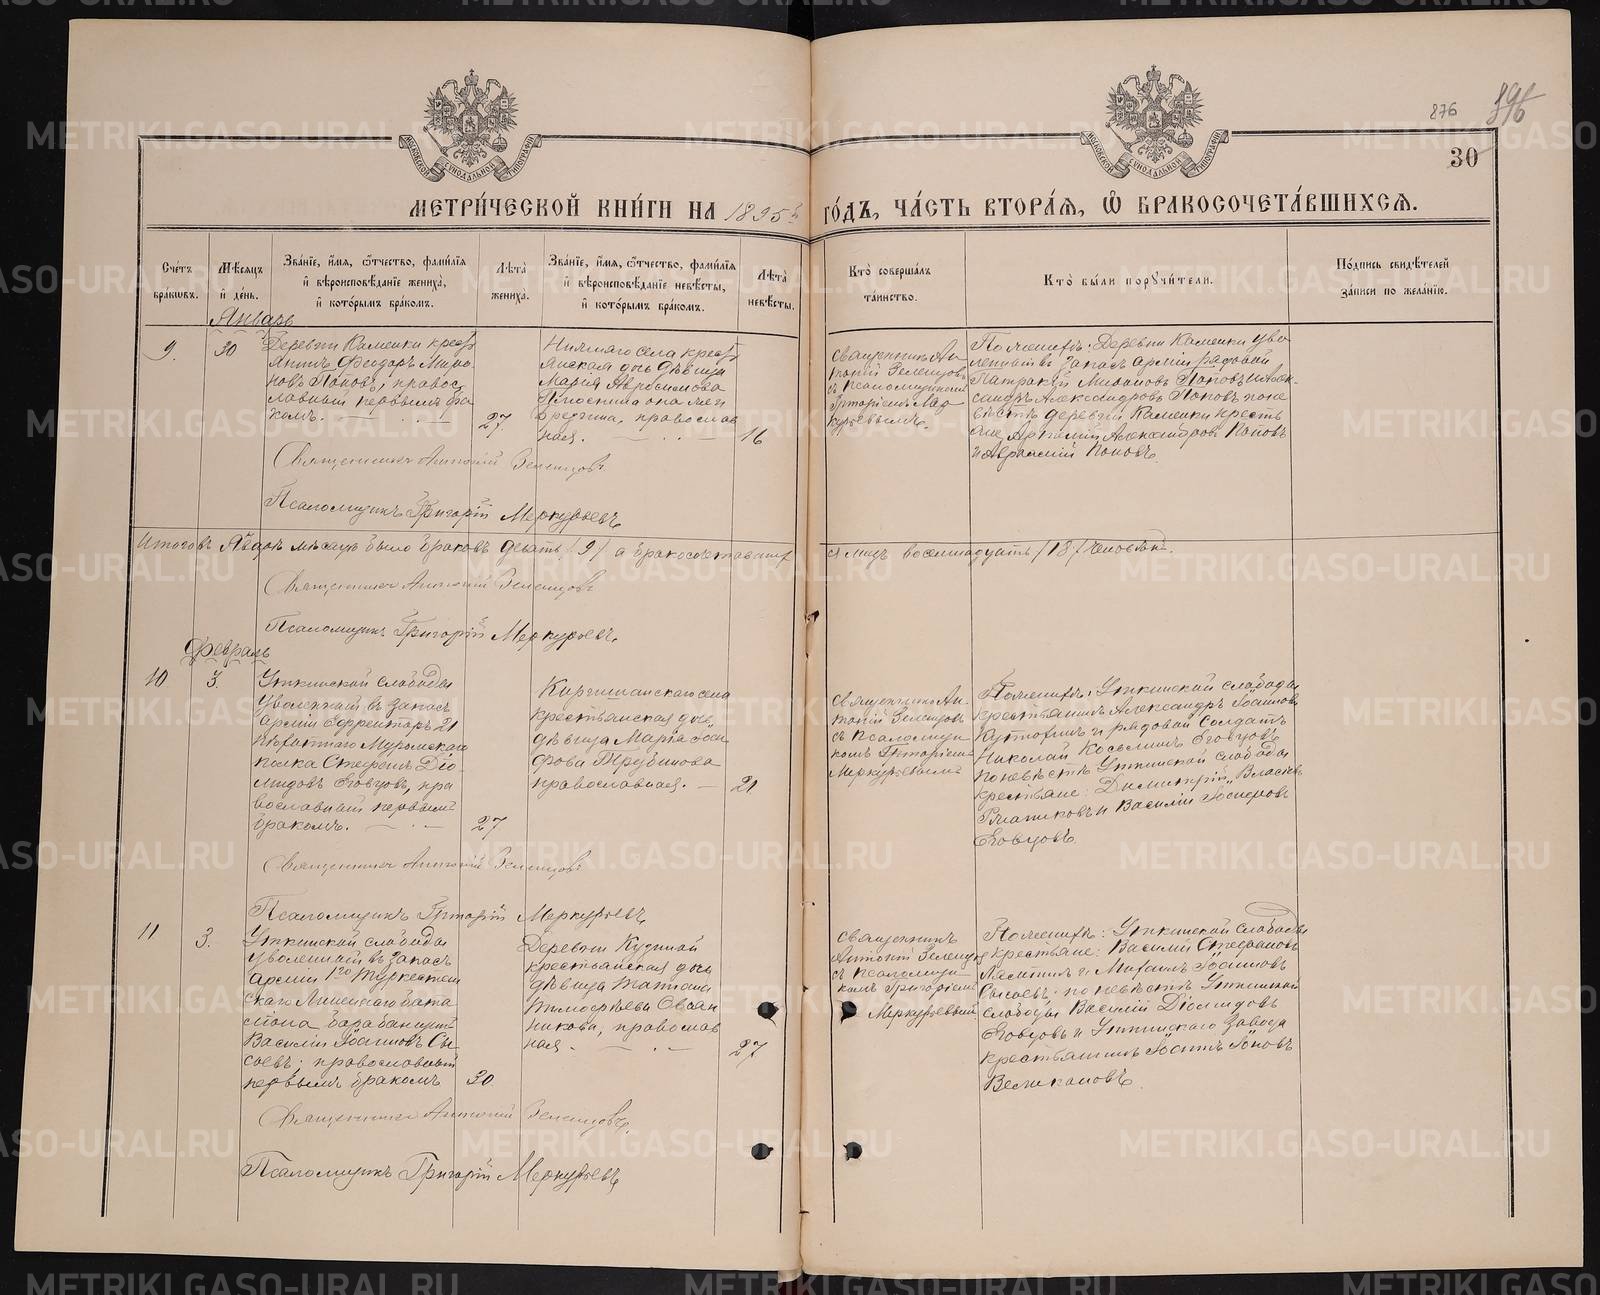 876 896
30
МОСКОВСКОЙ СѴНОДАЛЬНОЙ ТИПОГРАФІИ
МОСКОВСКОЙ СѴНОДАЛЬНОЙ ТИПОГРАФІИ
МЕТРИ́ЧЕСКОЙ КНИ́ГИ НА 1895й ГО́ДЪ, ЧА́СТЬ ВТОРА́Я, Ѡ БРАКОСОЧЕТА́ВШИХСѦ.
Сче́тъ бра́кѡвъ.
Мѣ́сѧцъ и҆ де́нь.
Зва́нїе, и҆́мѧ, ѻ҆́тчество, фами́лїѧ и҆ вѣроисповѣ́данїе жениха̀, и҆ кото́рымъ бра́комъ.
Лѣ́та жениха̀.
Зва́нїе, и҆́мѧ, ѻ҆́тчество, фами́лїѧ и҆ вѣроисповѣ́данїе невѣ́сты, и҆ кото́рымъ бра́комъ.
Лѣ́та невѣ́сты.
Кто̀ соверша́лъ та́инство.
Кто̀ бы́ли порꙋчи́тели.
По́дпись свидѣ́телей за́писи по жела́нїю.
Январь
9.
30
Деревни Каменки крест
янинъ Феодоръ Миро
новъ Поповъ, правос
лавный первымъ бра
комъ.
27.
Нижняго села крест
янская дочь дѣвица
Мария
православ
ная.
16
Священникъ Ан
тоній Зеленцовъ
съ псаломщикомъ
Григоріемъ Мер
курьевымъ.
По женихѣ: Деревни Каменки уво
ленный въ запасъ арміи рядовой
Поповъ и Алек
сандръ Александровъ Поповъ по не
вѣстѣ деревни Каменки кресть
яне Александровъ Поповъ
и Авраамій Поповъ.
Священникъ Антоній Зеленцовъ
Псаломщикъ Григорій Меркурьевъ
Итого въ Январѣ мѣсяцѣ было браковъ девять /9/ а бракосочетавших
ся лицъ восемнадцать /18/ человѣкъ.
Священникъ Антоній Зеленцовъ
Псаломщикъ Григорій Меркурьевъ.
Февраль
10
3.
Уткинской слободы
уволенный въ запасъ
арміи Ефрейторъ 21
пѣхотнаго Муромскаго
полка Стефанъ Діо
мидовъ Ековцовъ, пра
вославный первымъ
бракомъ.
27
Киргишанскаго села
крестьянская дочь
дѣвица Марія Іоси
фова Трубникова
православная.
21
Священникъ Ан
тоній Зеленцовъ
съ псаломщи
комъ Григоріемъ
Меркурьевымъ
По женихѣ: Уткинской слободы
крестьянинъ Александръ Іоанновъ
и рядовой солдатъ
Николай Косьминъ Ековцовъ
по невѣстѣ Уткинской слободы
крестьяне: Димитрій Власіевъ
и Василій Іосифовъ
Ековцовъ.
Священникъ Антоній Зеленцовъ
Псаломщикъ Григорій Меркурьевъ
11
3.
Уткинской слободы
уволенный въ запасъ
арміи 1го Туркестан
скаго Линейнаго бата
ліона барабанщикъ
Василій Іоанновъ Сы
соевъ; православный
первымъ бракомъ
30.
Деревни Кудиной
крестьянская дочь
дѣвица Татіана
Тимофѣева Овсян
никова, православ
ная.
27
Священникъ
Антоній Зеленцовъ
съ псаломщи
комъ Григоріемъ
Меркурьевымъ
По женихѣ: Уткинской слободы
крестьяне: Василій Стефановъ
и Михаилъ Іоанновъ
Сысоевъ; по невѣстѣ Уткинской
слободы Василій Діомидовъ
Ековцовъ и Уткинскаго завода
крестьянинъ
Великановъ.
Священникъ Антоній Зеленцовъ.
Псаломщикъ Григорій Меркурьевъ
METRIKI.GASO-URAL.RU